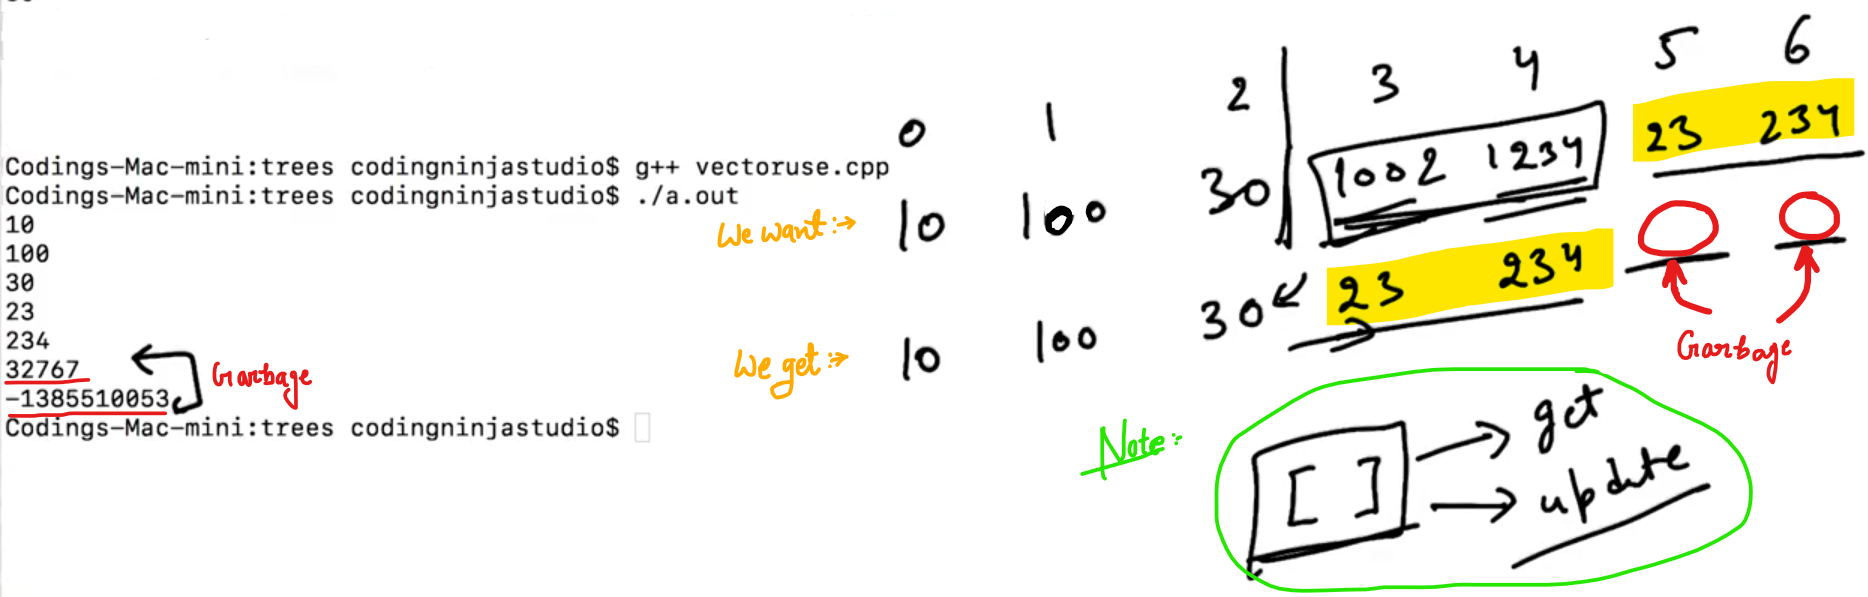 Codings-Mac-mini:trees codingninjastudio$ g++ vectoruse.cpp
Codings-Mac-mini:trees codingninjastudio$ ./a.out
10
100
30
23
234
32767
-1385510053
Garbage
Codings-Mac-mini:trees codingninjastudio$
0 1 2 3 4 5 6
We want:→ 10 100 30 1002 1234 23 234
We get:→ 10 100 30 23 234
Garbage
Note:
[ ] → get
→ update